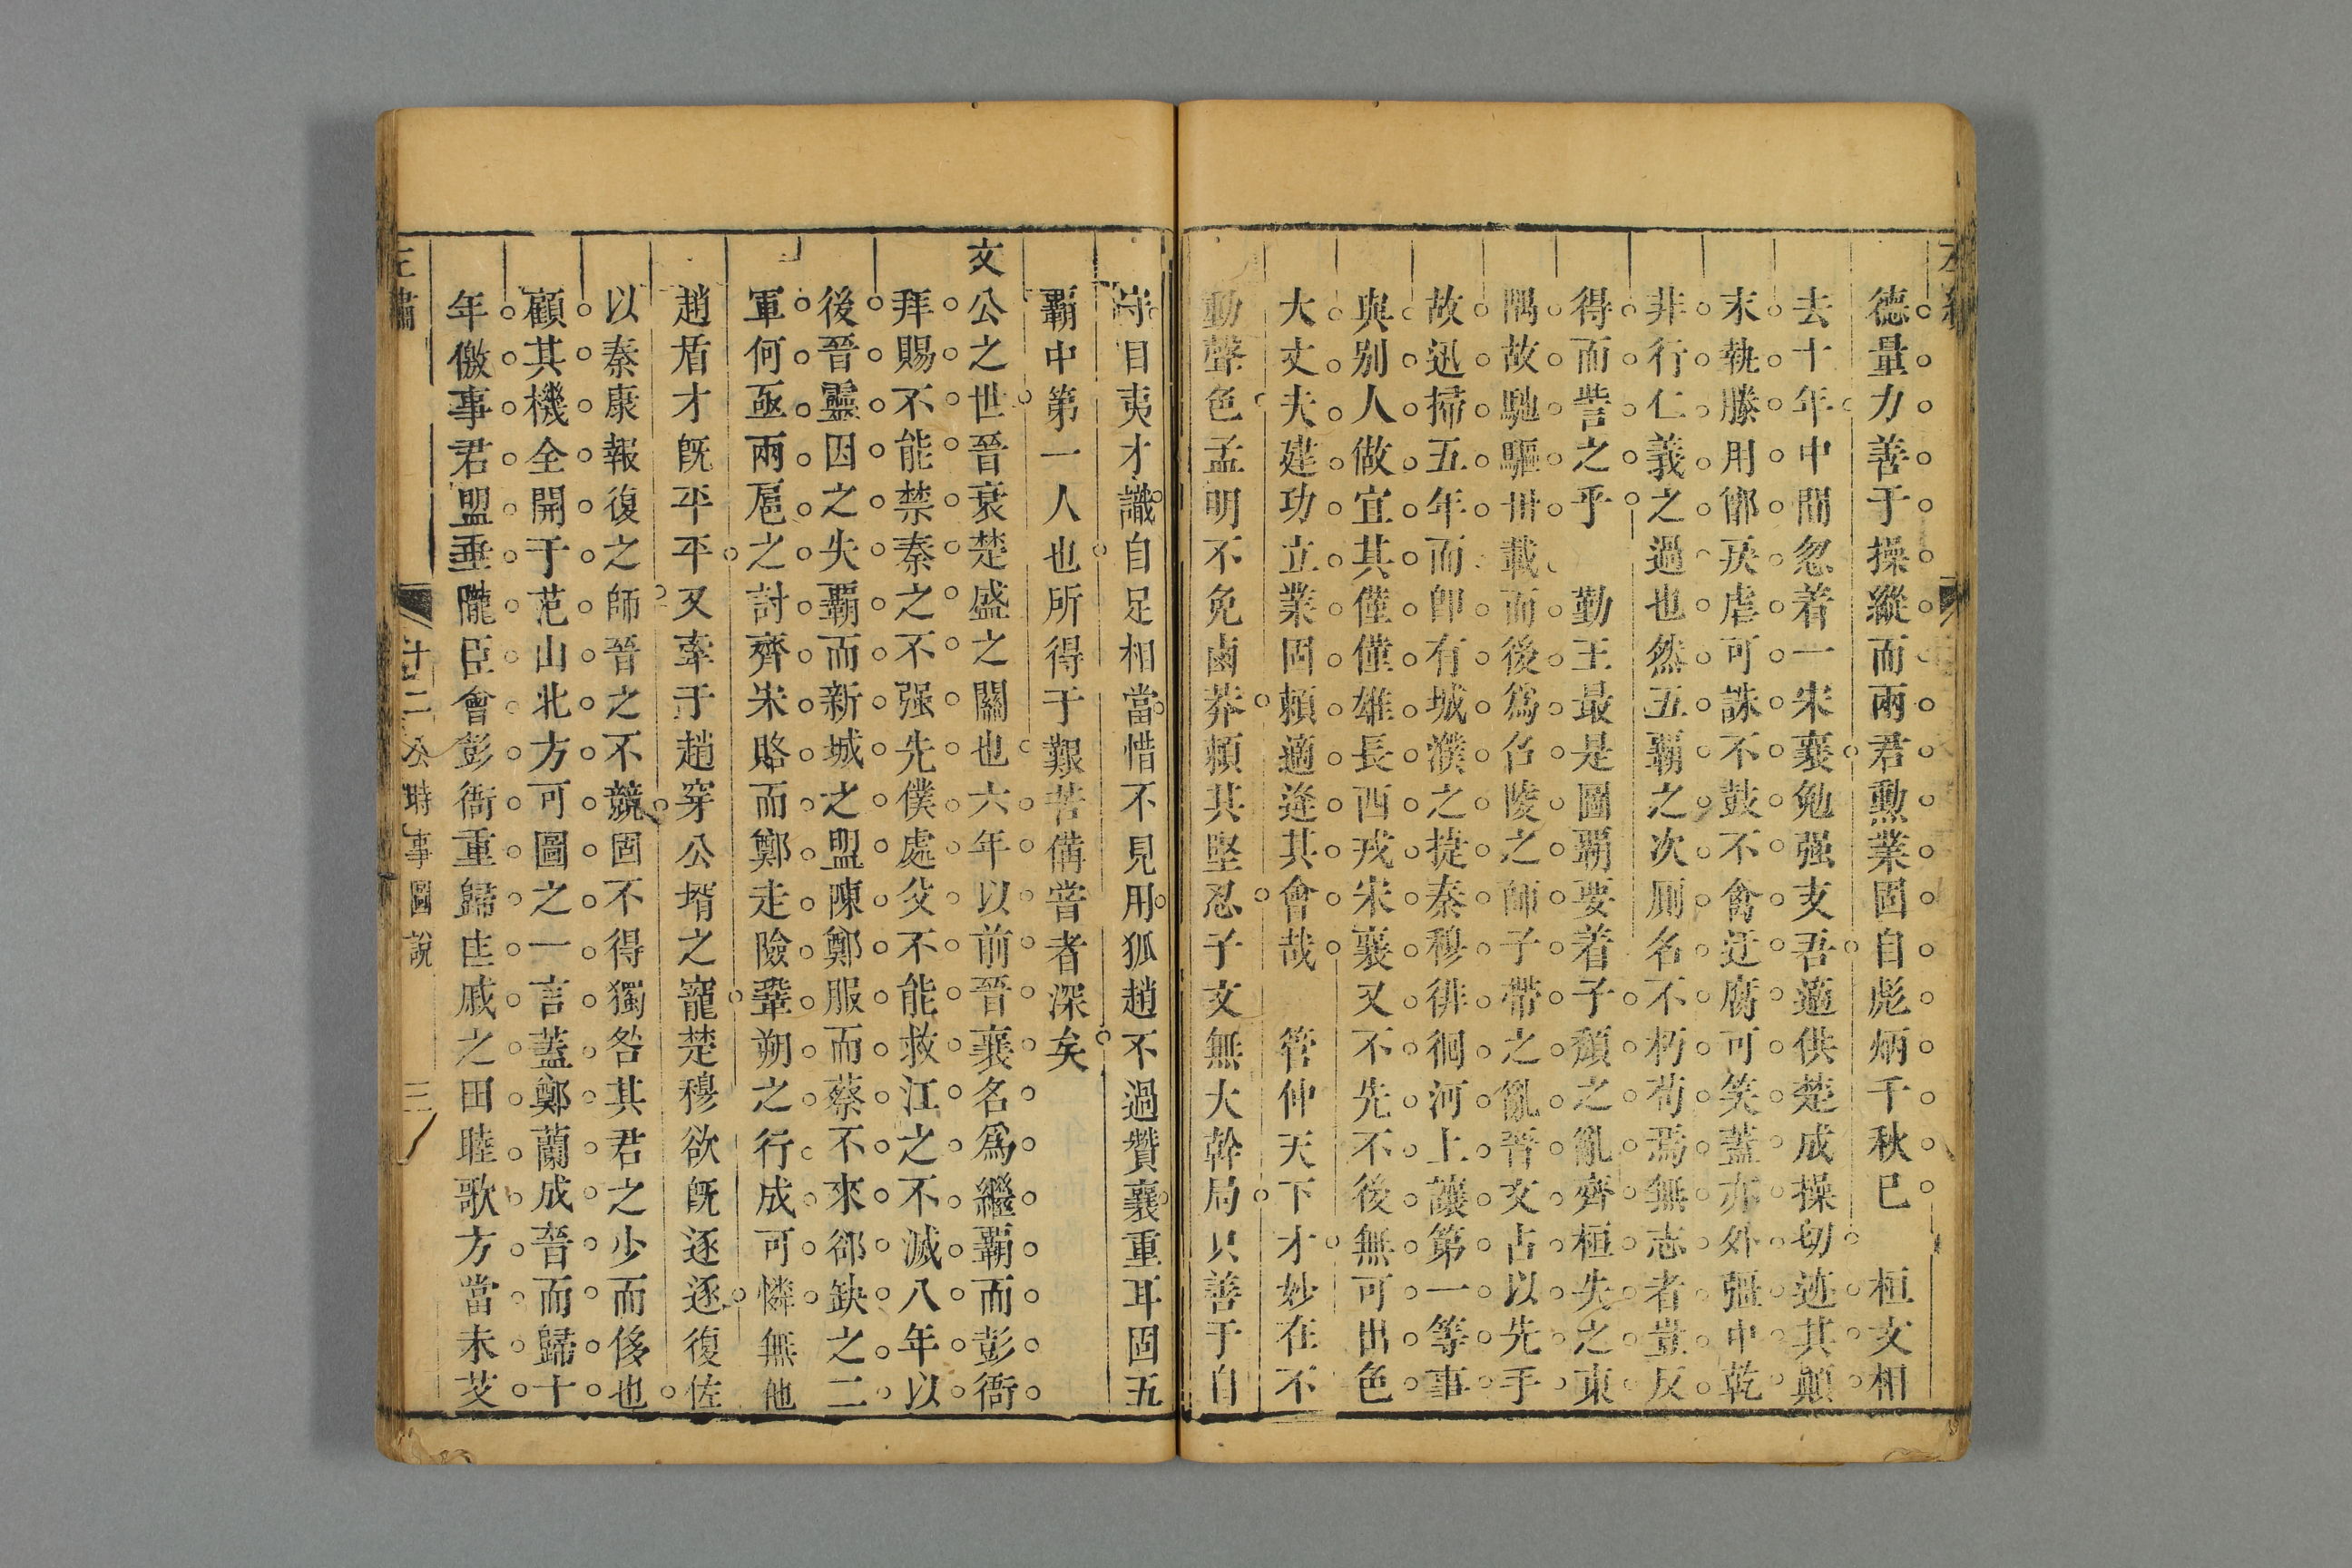 德量力善于操縱而兩君勲業固自彪炳千秋已　桓文相
去十年中間忽着一宋襄勉强支吾適供楚成操切迹其顛
末執滕用鄫戻虐可誅不鼓不禽迂腐可笑蓋亦外彊中乾
非行仁義之過也然五覇之次厠名不朽苟焉無志者豈反
得而訾之乎　勤王最是圖覇要着子頽之亂齊桓失之東
隅故馳驅卅載而後爲召陵之師子帶之亂晉文占以先手
故迅掃五年而卽有城濮之捷秦穆徘徊河上讓第一等事
與别人做宜其僅僅雄長西戎宋襄又不先不後無可出色
大丈夫建功立業固頼適逢其會哉　管仲天下才妙在不
動聲色孟明不免鹵莽頼其堅忍子文無大幹局只善于自
守目夷才識自足相當惜不見用狐趙不過贊襄重耳固五
覇中第一人也所得于艱苦備嘗者深矣
文公之世晉衰楚盛之關也六年以前晉襄名爲繼覇而彭衙
拜賜不能禁秦之不强先僕處父不能救江之不滅八年以
後晉靈因之失覇而新城之盟陳鄭服而蔡不來郤缺之二
軍何亟兩扈之討齊宋賂而鄭走險鞏朔之行成可憐無他
趙盾才旣平平又牽于趙穿公壻之寵楚穆欲旣逐逐復佐
以秦康報復之師晉之不競固不得獨咎其君之少而侈也
顧其機全開于范山北方可圖之一言蓋鄭蘭成晉而歸十
年儆事君盟垂隴臣會彭衙重歸匡戚之田睦歌方當未艾
左繡　十二公時事圖說　三